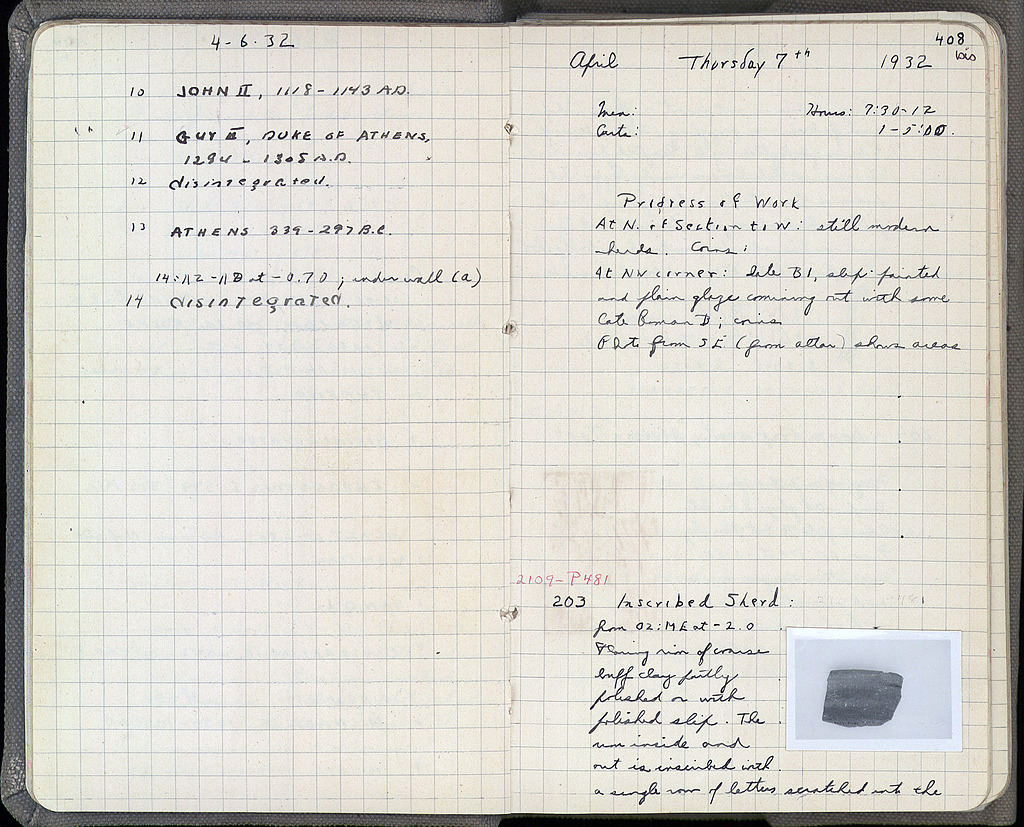 4-6-32
10 JOHN II, 1118-1143 A.D.
" 11 GUY II, DUKE OF ATHENS,
1294-1305 A.D.
12 disintegrated.
13 ATHENS 339-297 B.C.
14:ΛΖ-ΛΒ at -0.70; under wall (a)
14 disintegrated.
408
bis
April Thursday 7th 1932
Men: Hours: 7:30-12
Carts: 1-5:00.
Progress of Work
At N. of Section to W: still modern
sherds. Coins:
At NW corner: late B1, slip-painted
and plain glaze comining out with some
Late Roman D; coins
Photo from SE (from altar) shows areas
2109-P481
203 Inscribed Sherd:
from 02:ME at -2.0
Flaring rim of coarse
buff clay partly
polished or with
polished slip. The
rim inside and
out is inscribed with
a single row of letters scratched into the